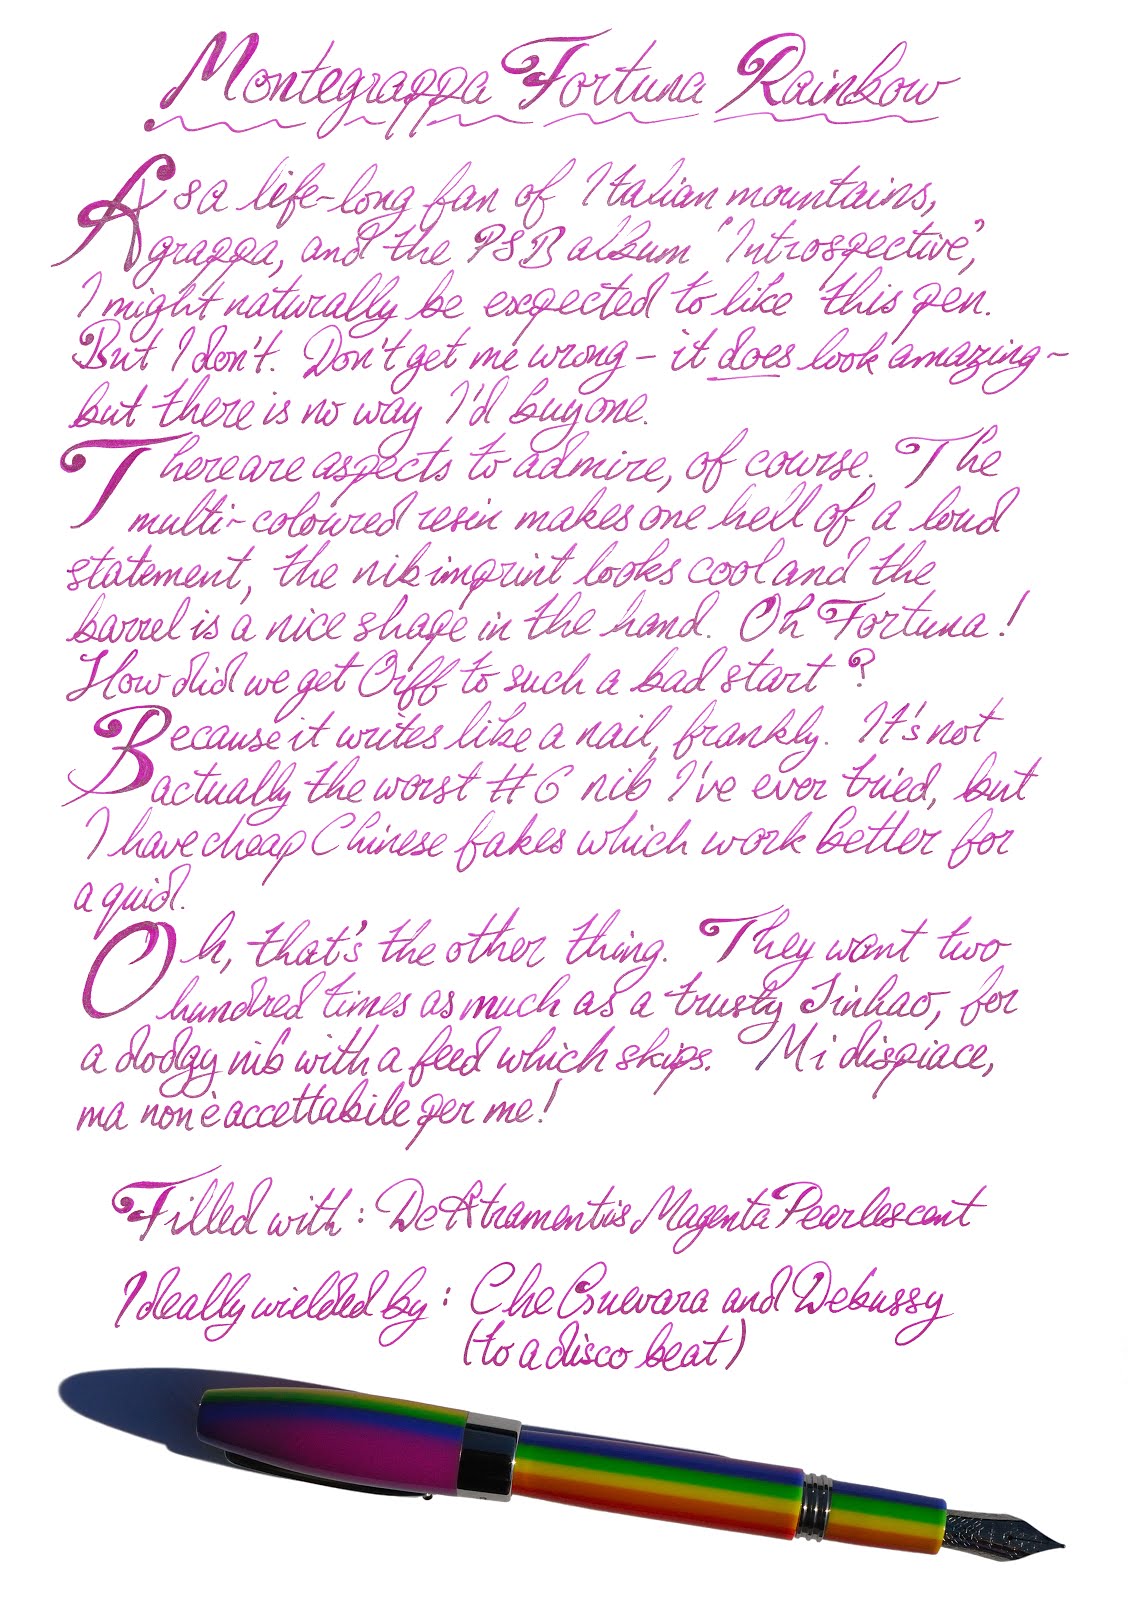 Montegrappa Fortuna Rainbow
As a life-long fan of Italian mountains,
grappa, and the PSB album 'Introspective',
I might naturally be expected to like this pen.
But I don't. Don't get me wrong – it does look amazing –
but there is no way I'd buy one.
There are aspects to admire, of course. The
multi-coloured resin makes one hell of a loud
statement, the nib imprint looks cool and the
barrel is a nice shape in the hand. Oh Fortuna!
How did we get Orff to such a bad start?
Because it writes like a nail, frankly. It's not
actually the worst #6 nib I've ever tried, but
I have cheap Chinese fakes which work better for
a quid.
Oh, that's the other thing. They want two
hundred times as much as a trusty Jinhao, for
a dodgy nib with a feed which skips. Mi dispiace,
ma non è accettabile per me!
Filled with: De Atramentis Magenta Pearlescent
Ideally wielded by: Che Guevara and Debussy
(to a disco beat)